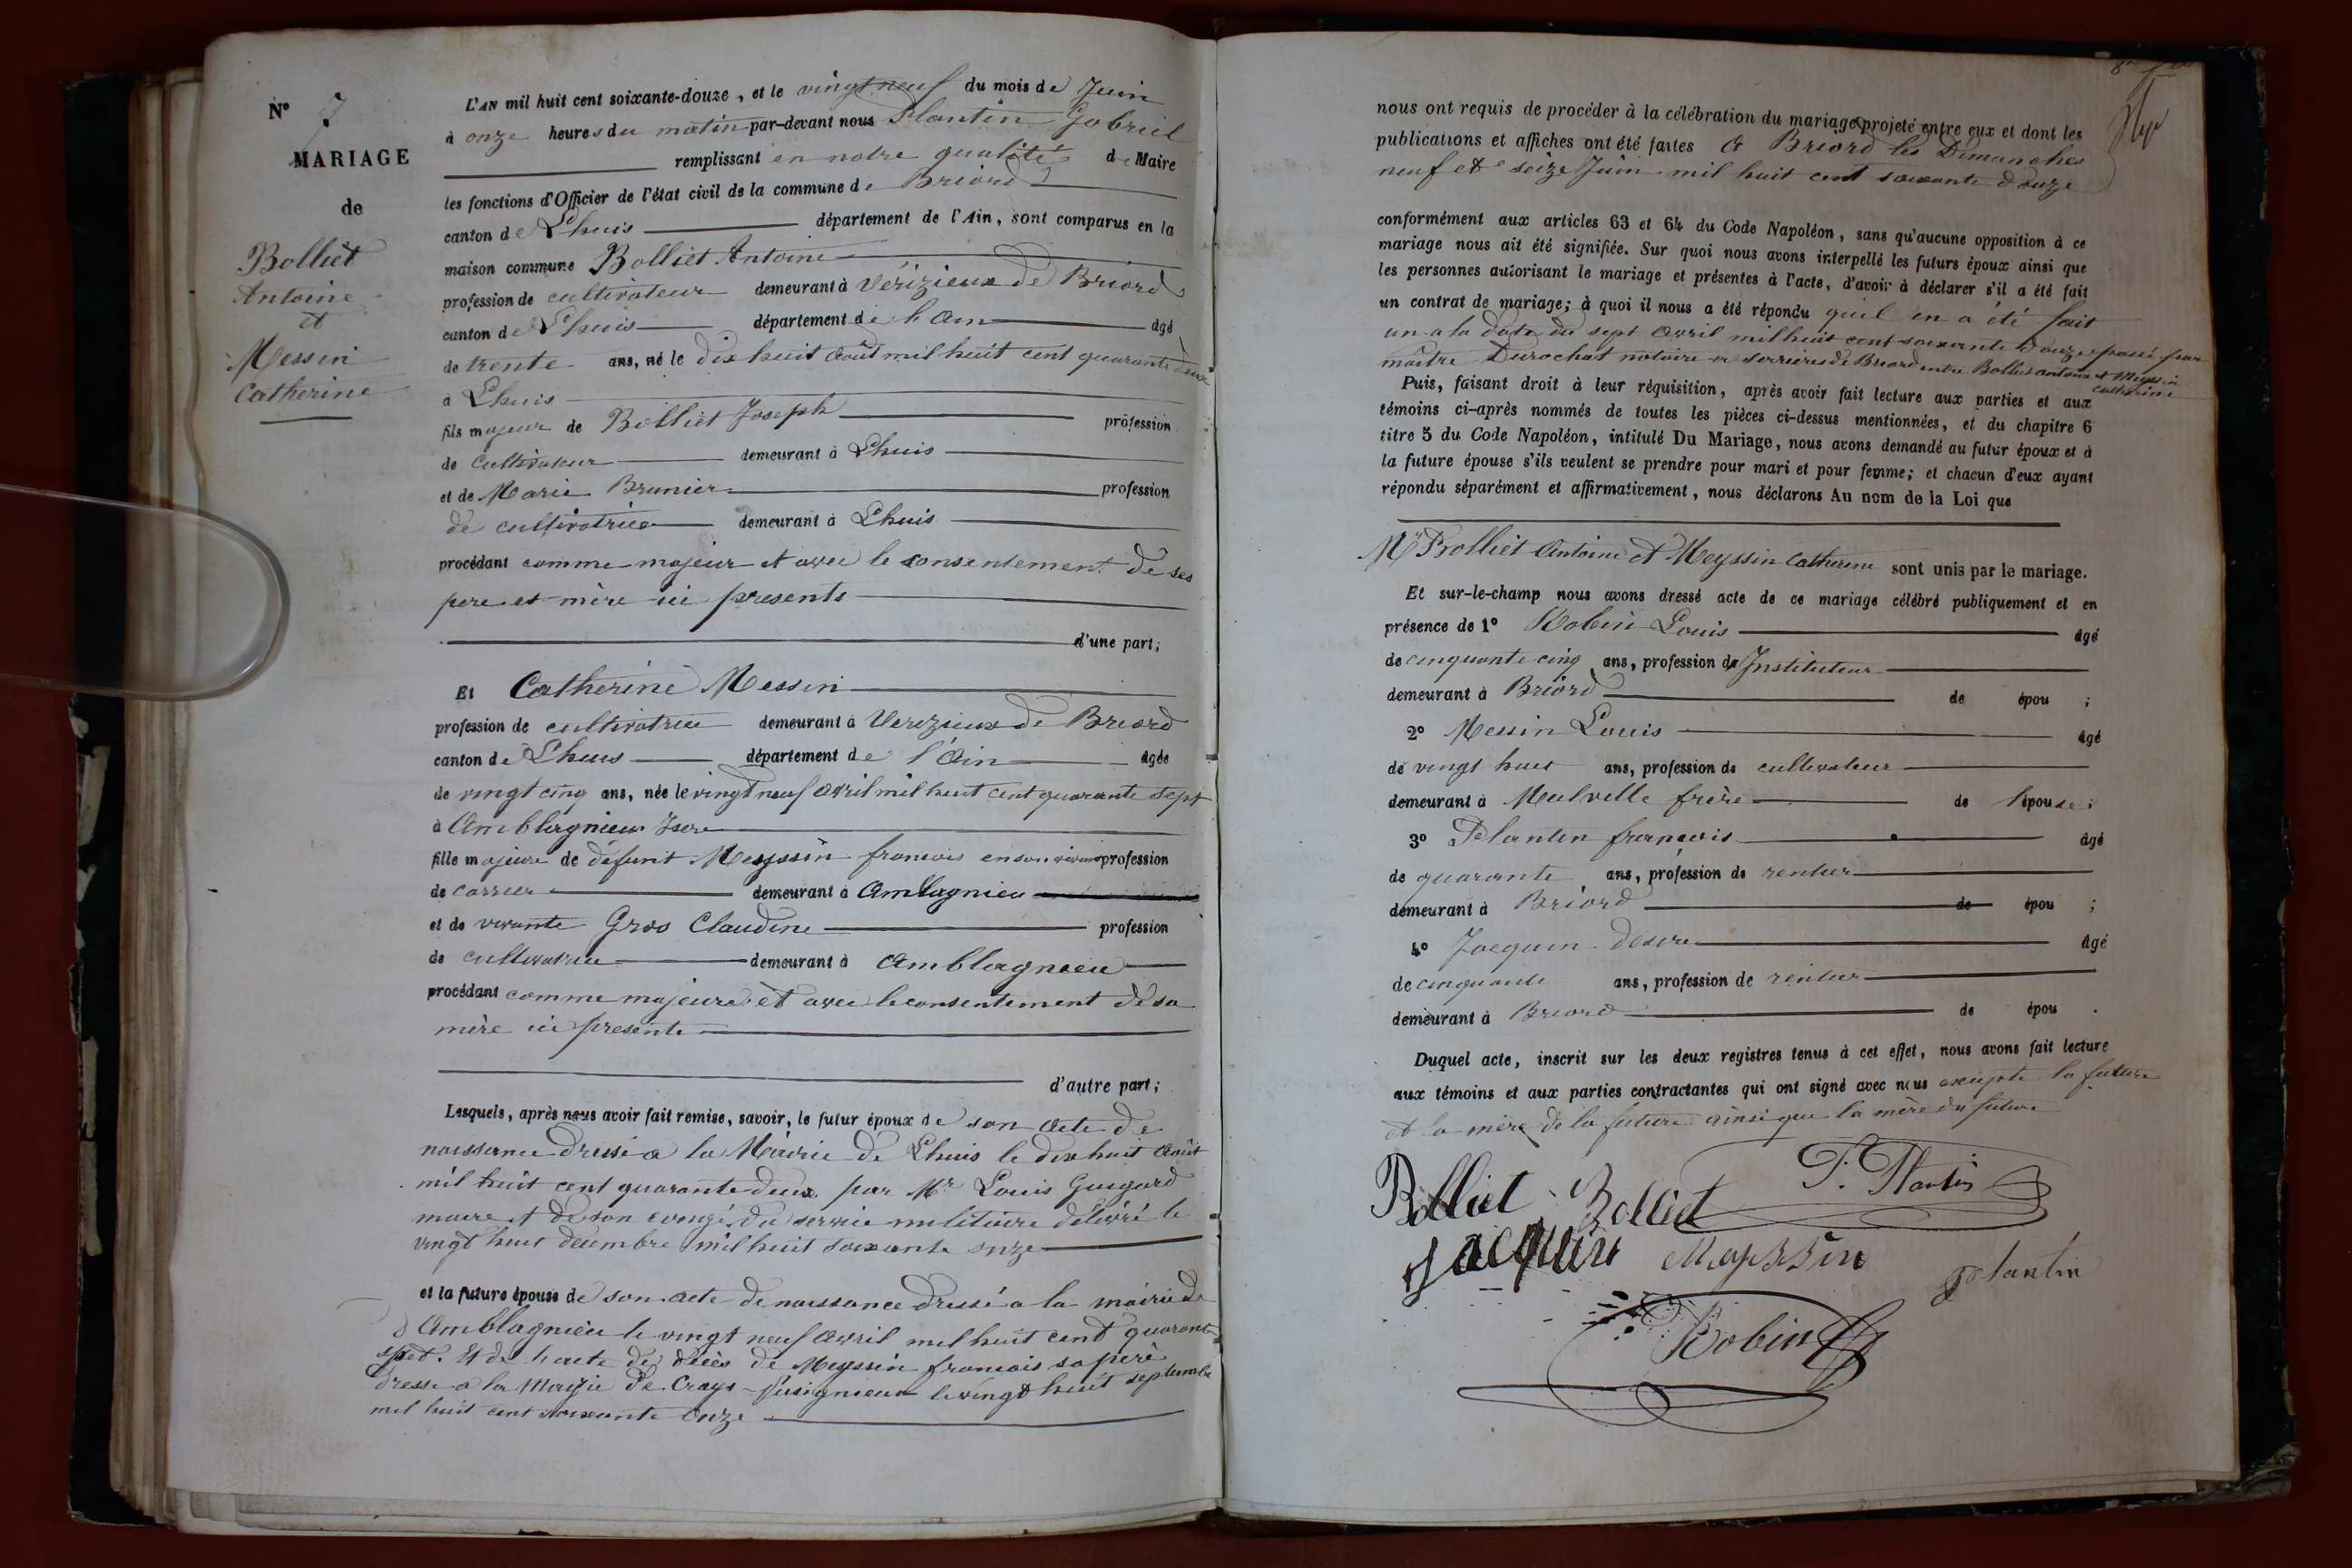 N° 7
MARIAGE
de
Bolliet
Antoine
et
Messin
Catherine
L'AN mil huit cent soixante-douze, et le vingt neuf du mois de Juin
à onze heures du matin par-devant nous Plantin Gabriel
remplissant en notre qualité de Maire
les fonctions d'Officier de l'état civil de la commune de Briord
canton de Lhuis département de l'Ain, sont comparus en la
maison commune Bolliet Antoine
profession de cultivateur demeurant à Vérizieux de Briord
canton de Lhuis département de l'ain âgé
de trente ans, né le dix huit août mil huit cent quarante deux
à Lhuis
fils majeur de Bolliet Joseph profession
de cultivateur demeurant à Lhuis
et de Marie Brunier profession
de cultivatrice demeurant à Lhuis
procédant comme majeur et avec le consentement de ses
pere et mère ici presents
d'une part;
Et Catherine Messin
profession de cultivatrice demeurant à Verizieux de Briord
canton de Lhuis département de l'Ain âgée
de vingt cinq ans, née le vingt neuf avril mil huit cent quarante sept
à Amblagnieu Isere
fille majeure de défunt Meyssin francois en son vivant profession
de carrier demeurant à Amblagnieu
et de vivante Gros Claudine profession
de cultivatrice demeurant à Amblagnieu
procédant comme majeure et avec le consentement de sa
mère ici presente
d'autre part;
Lesquels, après nous avoir fait remise, savoir, le futur époux de son acte de
naissance dressé a la Mairie de Lhuis le dix huit août
mil huit cent quarante deux par Mr Louis Guigard
maire et de son congé du service militaire délivré le
vingt huit decembre mil huit soixante onze
et la future épouse de son acte de naissance dressé a la mairie de
d'Amblagnieu le vingt neuf avril mil huit cent quarante
sept. Et de l'acte de décès de Meyssin francois sa père
dresse a la Mairie de Crays-Pusignieux le vingt huit septembre
mil huit cent soixante onze
nous ont requis de procéder à la célébration du mariage projeté entre eux et dont les
publications et affiches ont été faites a Briord les Dimanches
neuf et seize Juin mil huit cent soixante douze
conformément aux articles 63 et 64 du Code Napoléon, sans qu'aucune opposition à ce
mariage nous ait été signifiée. Sur quoi nous avons interpellé les futurs époux ainsi que
les personnes autorisant le mariage et présentes à l'acte, d'avoir à déclarer s'il a été fait
un contrat de mariage; à quoi il nous a été répondu quil en a été fait
un a la date du sept avril mil huit cent soixante douze passé par
maitre Durochat notaire a Serrières de Briord entre Bolliet antoine et Meyssin
Catherine
Puis, faisant droit à leur réquisition, après avoir fait lecture aux parties et aux
témoins ci-après nommés de toutes les pièces ci-dessus mentionnées, et du chapitre 6
titre 5 du Code Napoléon, intitulé Du Mariage, nous avons demandé au futur époux et à
la future épouse s'ils veulent se prendre pour mari et pour femme; et chacun d'eux ayant
répondu séparément et affirmativement, nous déclarons Au nom de la Loi que
Mr Bolliet Antoine et Meyssin Catherine sont unis par le mariage.
Et sur-le-champ nous avons dressé acte de ce mariage célébré publiquement et en
présence de 1° Robin Louis âgé
de cinquante cinq ans, profession de Instituteur
demeurant à Briord de épou ;
2° Messin Louis âgé
de vingt huit ans, profession de cultivateur
demeurant à Malville frère de l'épouse;
3° Plantin francois âgé
de quarante ans, profession de rentier
demeurant à Briord de épou ;
4° Jacquin âgé
de cinquante ans, profession de rentier
demeurant à Briord de épou .
Duquel acte, inscrit sur les deux registres tenus à cet effet, nous avons fait lecture
aux témoins et aux parties contractantes qui ont signé avec nous excepte la future
et la mère de la future ainsi que la mère du future
Bolliet Bolliet F. Plantin
Jacquin Meyssin Plantin
Robin